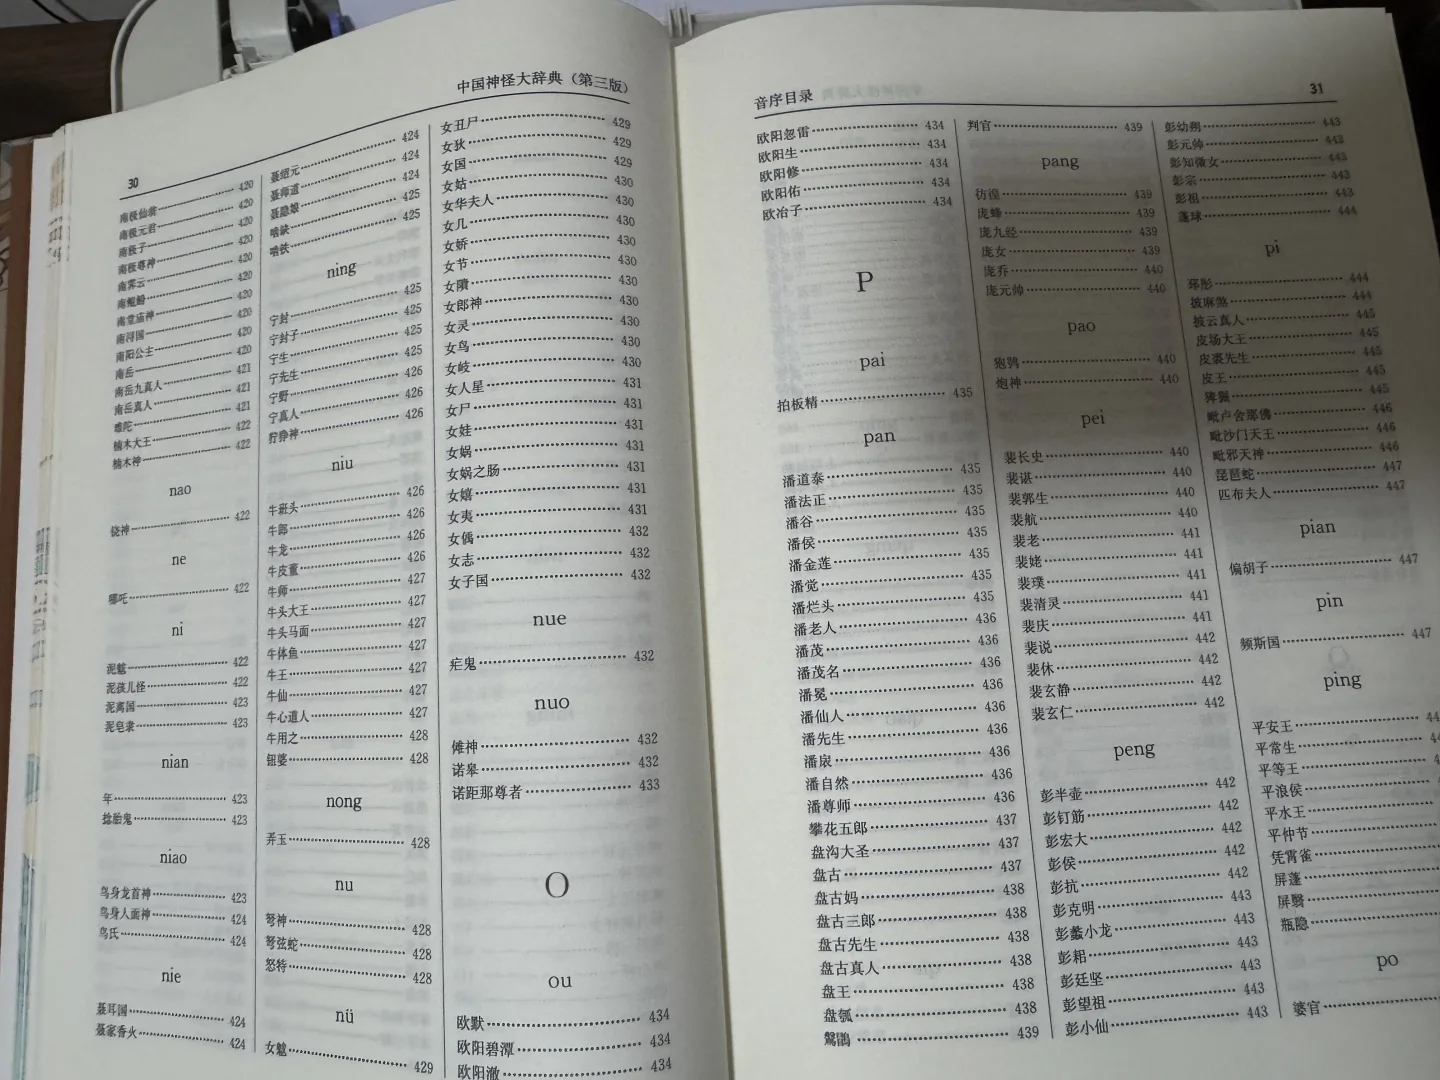 中国神怪大辞典（第三版）
30
南极仙翁 420
南极元君 420
南极子 420
南极尊神 420
南霁云 420
南堂庙神 420
南浔国 420
南阳公主 420
南岳 420
南岳九真人 421
南岳真人 421
难陀 421
楠木大王 422
楠木神 422
nao
铙神 422
ne
哪吒 422
ni
泥魃 422
泥孩儿怪 422
泥离国 423
泥皂隶 423
nian
年 423
捻胎鬼 423
niao
鸟身龙首神 423
鸟身人面神 424
鸟氏 424
nie
聂耳国 424
聂家香火 424
聂绍元 424
聂师道 424
聂隐娘 424
啮缺 425
啮铁 425
ning
宁封 425
宁封子 425
宁生 425
宁先生 425
宁野 426
宁真人 426
狞狰神 426
niu
牛班头 426
牛郎 426
牛龙 426
牛皮董 426
牛师 427
牛头大王 427
牛头马面 427
牛体鱼 427
牛王 427
牛仙 427
牛心道人 427
牛用之 428
钮婆 428
nong
弄玉 428
nu
弩神 428
弩弦蛇 428
怒特 428
nü
女魃 429
女丑尸 429
女狄 429
女国 429
女姑 430
女华夫人 430
女几 430
女娇 430
女节 430
女隤 430
女郎神 430
女灵 430
女鸟 430
女岐 430
女人星 431
女尸 431
女娃 431
女娲 431
女娲之肠 431
女嬉 431
女夷 431
女偶 432
女志 432
女子国 432
nue
疟鬼 432
nuo
傩神 432
诺皋 432
诺距那尊者 433
O
ou
欧默 434
欧阳碧潭 434
欧阳澈 434
音序目录
31
欧阳忽雷 434
欧阳生 434
欧阳修 434
欧阳佑 434
欧冶子 434
P
pai
拍板精 435
pan
潘道泰 435
潘法正 435
潘谷 435
潘侯 435
潘金莲 435
潘觉 435
潘烂头 435
潘老人 436
潘茂 436
潘茂名 436
潘冕 436
潘仙人 436
潘先生 436
潘扆 436
潘自然 436
潘尊师 436
攀花五郎 437
盘沟大圣 437
盘古 437
盘古妈 438
盘古三郎 438
盘古先生 438
盘古真人 438
盘王 438
盘瓠 438
鷩鶥 439
判官 439
pang
彷徨 439
庞蜂 439
庞九经 439
庞女 439
庞乔 440
庞元帅 440
pao
狍鸮 440
炮神 440
pei
裴长史 440
裴谌 440
裴郭生 440
裴航 440
裴老 441
裴姥 441
裴璞 441
裴清灵 441
裴庆 441
裴说 442
裴休 442
裴玄静 442
裴玄仁 442
peng
彭半壶 442
彭钉筋 442
彭宏大 442
彭侯 442
彭抗 442
彭克明 443
彭蠡小龙 443
彭耜 443
彭廷坚 443
彭望祖 443
彭小仙 443
彭幼朔 443
彭元帅 443
彭知微女 443
彭宗 443
彭祖 443
蓬球 444
pi
邳彤 444
披麻煞 444
披云真人 445
皮场大王 445
皮裘先生 445
皮王 445
毗卢舍那佛 446
毗沙门天王 446
毗邪天神 446
琵琶蛇 447
匹布夫人 447
pian
偏胡子 447
pin
频斯国 447
ping
平安王
平常生
平等王
平浪侯
平水王
平仲节
凭霄雀
屏蓬
屏翳
瓶隐
po
婆官